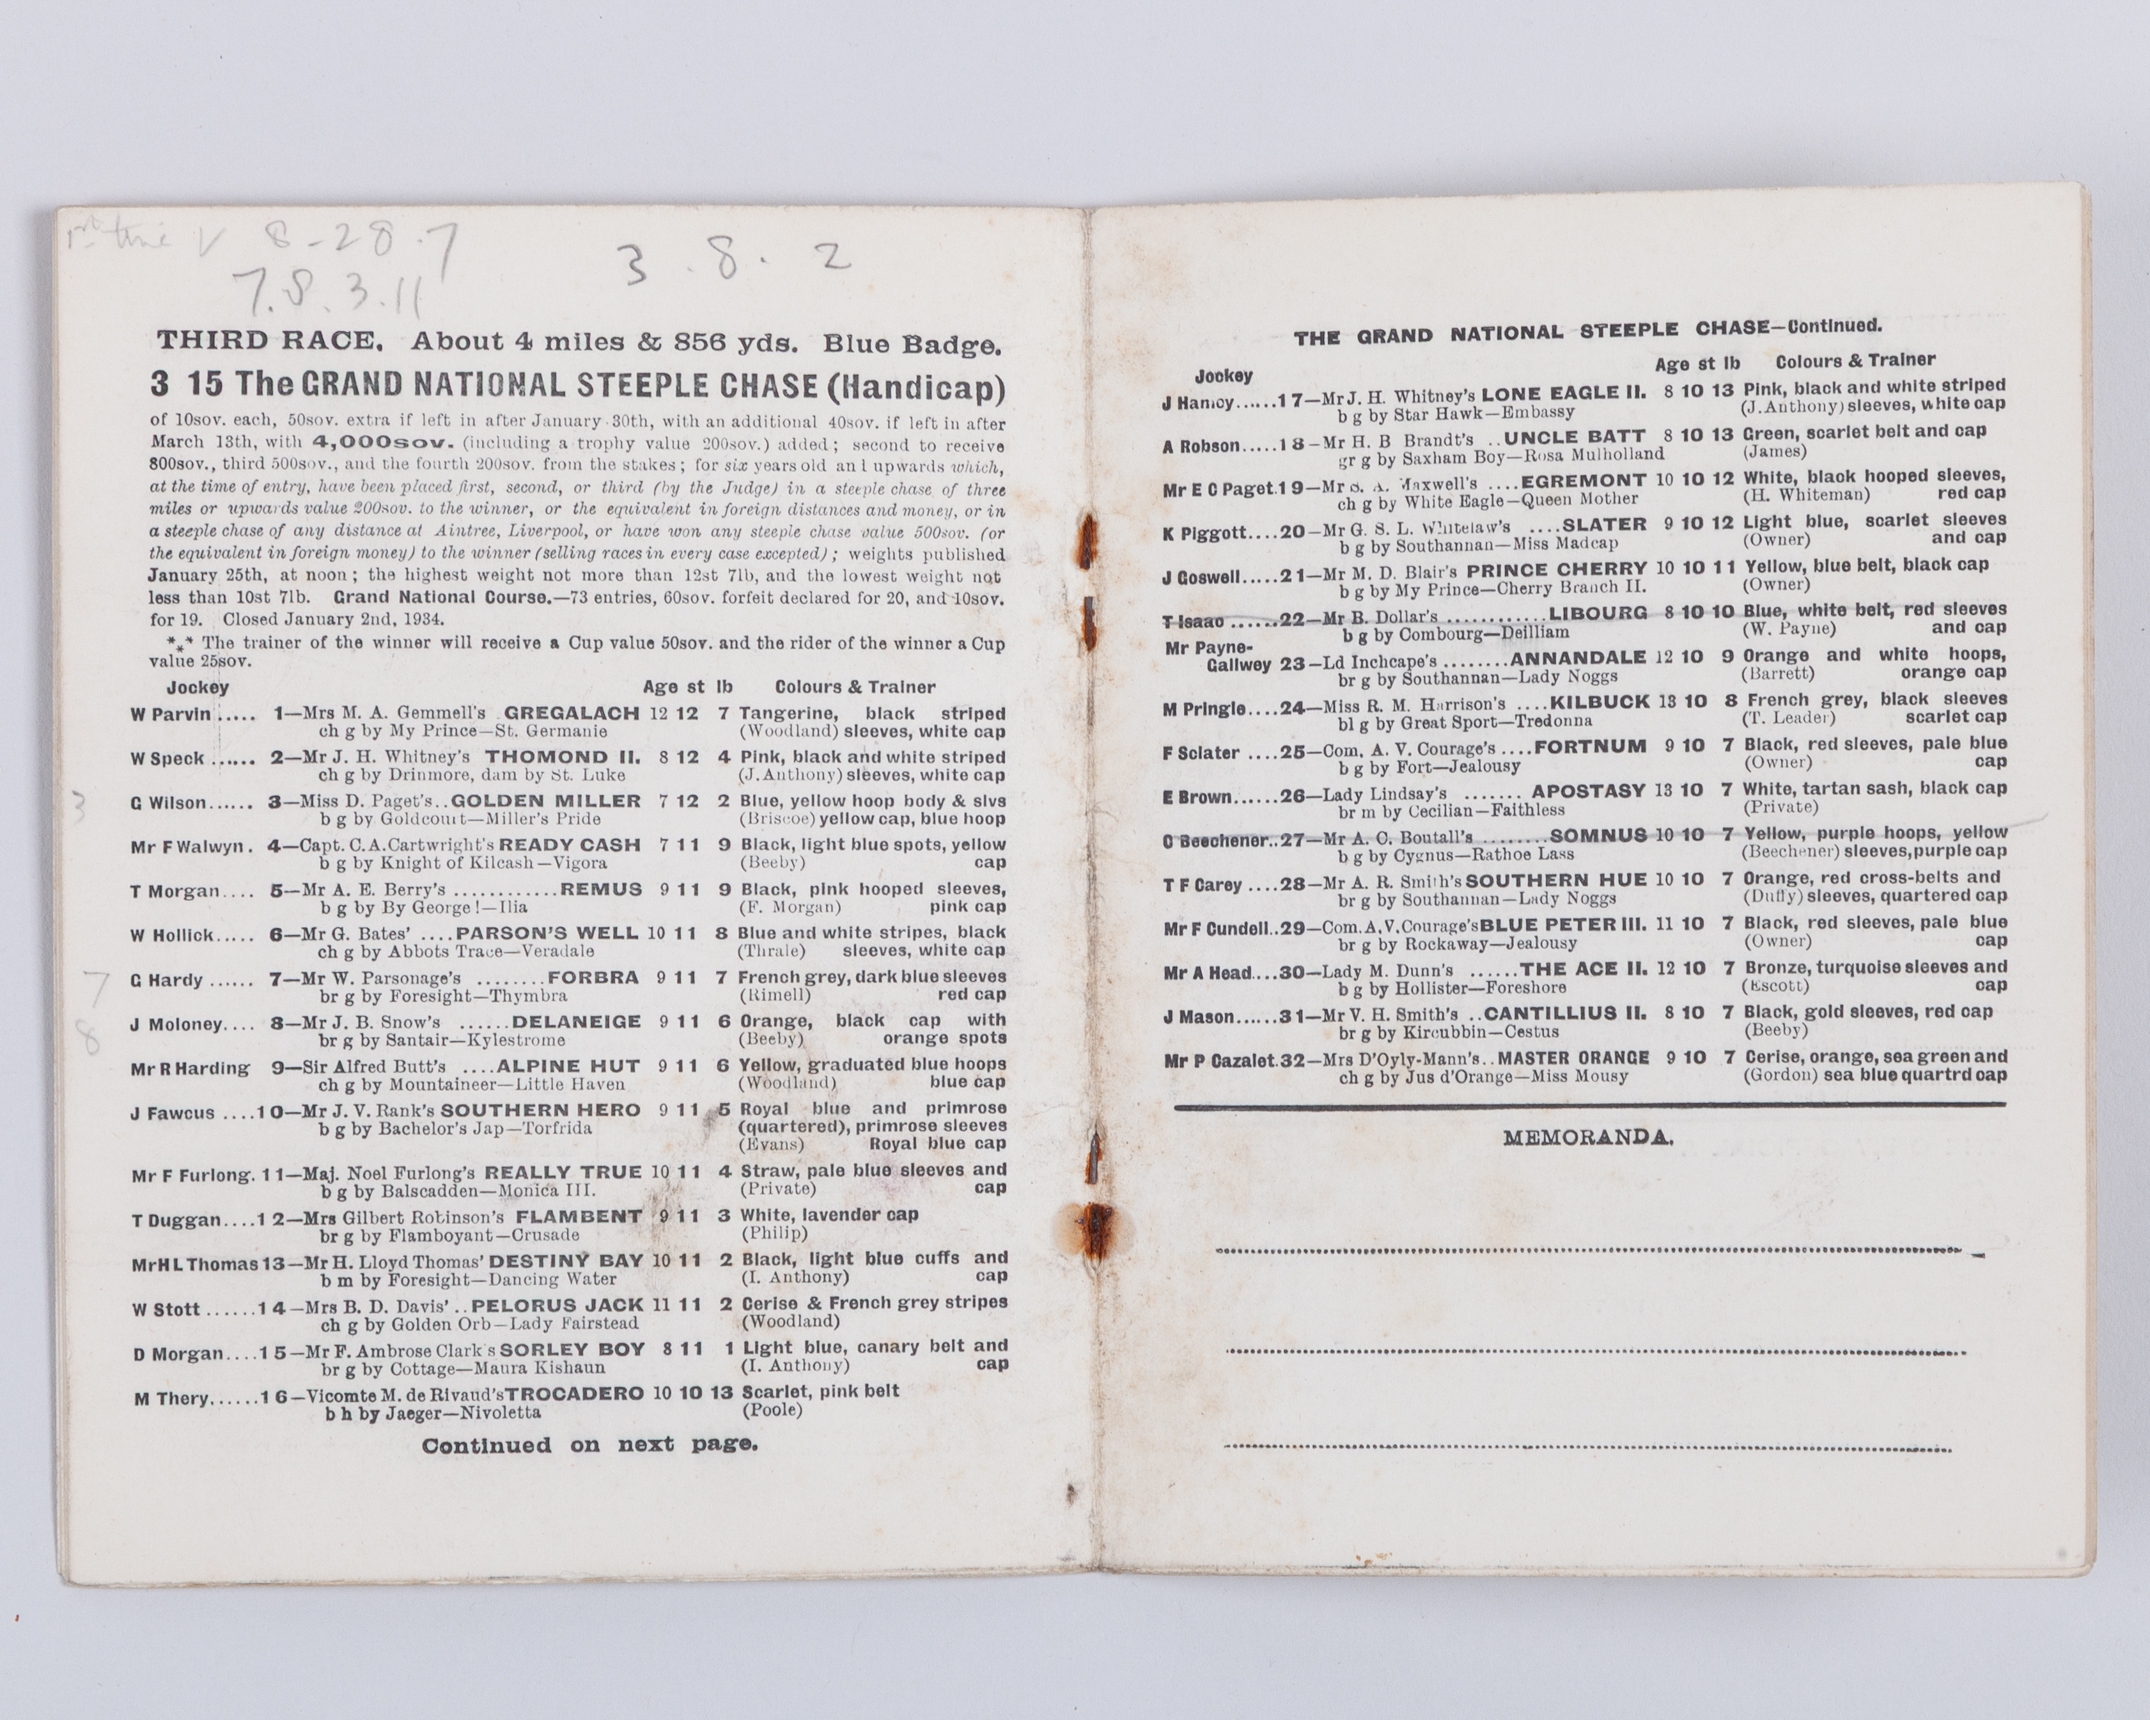 1st time V 8-28.7
7.8.3.11
3 . 8 . 2
THIRD RACE. About 4 miles & 856 yds. Blue Badge.
3 15 The GRAND NATIONAL STEEPLE CHASE (Handicap)
of 10sov. each, 50sov. extra if left in after January 30th, with an additional 40sov. if left in after
March 13th, with 4,000sov. (including a trophy value 200sov.) added; second to receive
800sov., third 500sov., and the fourth 200sov. from the stakes; for six years old an l upwards which,
at the time of entry, have been placed first, second, or third (by the Judge) in a steeple chase of three
miles or upwards value 200sov. to the winner, or the equivalent in foreign distances and money, or in
a steeple chase of any distance at Aintree, Liverpool, or have won any steeple chase value 500sov. (or
the equivalent in foreign money) to the winner (selling races in every case excepted); weights published
January 25th, at noon; the highest weight not more than 12st 7lb, and the lowest weight not
less than 10st 7lb. Grand National Course.—73 entries, 60sov. forfeit declared for 20, and 10sov.
for 19. Closed January 2nd, 1934.
*** The trainer of the winner will receive a Cup value 50sov. and the rider of the winner a Cup
value 25sov.
Jockey Age st lb Colours & Trainer
W Parvin ..... 1—Mrs M. A. Gemmell's GREGALACH 12 12 7 Tangerine, black striped
ch g by My Prince—St. Germanie (Woodland) sleeves, white cap
W Speck ...... 2—Mr J. H. Whitney's THOMOND II. 8 12 4 Pink, black and white striped
ch g by Drinmore, dam by St. Luke (J. Anthony) sleeves, white cap
3 G Wilson...... 3—Miss D. Paget's..GOLDEN MILLER 7 12 2 Blue, yellow hoop body & slvs
b g by Goldcourt—Miller's Pride (Briscoe) yellow cap, blue hoop
Mr F Walwyn. 4—Capt. C.A.Cartwright's READY CASH 7 11 9 Black, light blue spots, yellow
b g by Knight of Kilcash—Vigora (Beeby) cap
T Morgan.... 5—Mr A. E. Berry's ............REMUS 9 11 9 Black, pink hooped sleeves,
b g by By George!—Ilia (F. Morgan) pink cap
W Hollick..... 6—Mr G. Bates' ....PARSON'S WELL 10 11 8 Blue and white stripes, black
ch g by Abbots Trace—Veradale (Thrale) sleeves, white cap
7 G Hardy ...... 7—Mr W. Parsonage's ........FORBRA 9 11 7 French grey, dark blue sleeves
br g by Foresight—Thymbra (Rimell) red cap
8 J Moloney.... 8—Mr J. B. Snow's ......DELANEIGE 9 11 6 Orange, black cap with
br g by Santair—Kylestrome (Beeby) orange spots
Mr R Harding 9—Sir Alfred Butt's ....ALPINE HUT 9 11 6 Yellow, graduated blue hoops
ch g by Mountaineer—Little Haven (Woodland) blue cap
J Fawcus ....10—Mr J. V. Rank's SOUTHERN HERO 9 11 5 Royal blue and primrose
b g by Bachelor's Jap—Torfrida (quartered), primrose sleeves
(Evans) Royal blue cap
Mr F Furlong. 11—Maj. Noel Furlong's REALLY TRUE 10 11 4 Straw, pale blue sleeves and
b g by Balscadden—Monica III. (Private) cap
T Duggan....12—Mrs Gilbert Robinson's FLAMBENT 9 11 3 White, lavender cap
br g by Flamboyant—Crusade (Philip)
Mr H L Thomas 13—Mr H. Lloyd Thomas' DESTINY BAY 10 11 2 Black, light blue cuffs and
b m by Foresight—Dancing Water (I. Anthony) cap
W Stott ......14—Mrs B. D. Davis' ..PELORUS JACK 11 11 2 Cerise & French grey stripes
ch g by Golden Orb—Lady Fairstead (Woodland)
D Morgan....15—Mr F. Ambrose Clark's SORLEY BOY 8 11 1 Light blue, canary belt and
br g by Cottage—Maura Kishaun (I. Anthony) cap
M Thery......16—Vicomte M. de Rivaud's TROCADERO 10 10 13 Scarlet, pink belt
b h by Jaeger—Nivoletta (Poole)
Continued on next page.
THE GRAND NATIONAL STEEPLE CHASE—Continued.
Jockey Age st lb Colours & Trainer
J Hamey......17—Mr J. H. Whitney's LONE EAGLE II. 8 10 13 Pink, black and white striped
b g by Star Hawk—Embassy (J. Anthony) sleeves, white cap
A Robson.....18—Mr H. B Brandt's ..UNCLE BATT 8 10 13 Green, scarlet belt and cap
gr g by Saxham Boy—Rosa Mulholland (James)
Mr E C Paget.19—Mr S. A. Maxwell's ....EGREMONT 10 10 12 White, black hooped sleeves,
ch g by White Eagle—Queen Mother (H. Whiteman) red cap
K Piggott....20—Mr G. S. L. Whitelaw's ....SLATER 9 10 12 Light blue, scarlet sleeves
b g by Southannan—Miss Madcap (Owner) and cap
J Goswell.....21—Mr M. D. Blair's PRINCE CHERRY 10 10 11 Yellow, blue belt, black cap
b g by My Prince—Cherry Branch II. (Owner)
T Isaac ......22—Mr B. Dollar's ............LIBOURG 8 10 10 Blue, white belt, red sleeves
b g by Combourg—Deilliam (W. Payne) and cap
Mr Payne-
Gallwey 23—Ld Inchcape's ........ANNANDALE 12 10 9 Orange and white hoops,
br g by Southannan—Lady Noggs (Barrett) orange cap
M Pringle....24—Miss R. M. Harrison's ....KILBUCK 13 10 8 French grey, black sleeves
bl g by Great Sport—Tredonna (T. Leader) scarlet cap
F Sclater ....25—Com. A. V. Courage's ....FORTNUM 9 10 7 Black, red sleeves, pale blue
b g by Fort—Jealousy (Owner) cap
E Brown......26—Lady Lindsay's ....... APOSTASY 13 10 7 White, tartan sash, black cap
br m by Cecilian—Faithless (Private)
C Beechener..27—Mr A. C. Boutall's ........SOMNUS 10 10 7 Yellow, purple hoops, yellow
b g by Cygnus—Rathoe Lass (Beechener) sleeves, purple cap
T F Carey ....28—Mr A. R. Smith's SOUTHERN HUE 10 10 7 Orange, red cross-belts and
br g by Southannan—Lady Noggs (Duffy) sleeves, quartered cap
Mr F Cundell..29—Com. A.V.Courage's BLUE PETER III. 11 10 7 Black, red sleeves, pale blue
br g by Rockaway—Jealousy (Owner) cap
Mr A Head....30—Lady M. Dunn's ......THE ACE II. 12 10 7 Bronze, turquoise sleeves and
b g by Hollister—Foreshore (Escott) cap
J Mason......31—Mr V. H. Smith's ..CANTILLIUS II. 8 10 7 Black, gold sleeves, red cap
br g by Kircubbin—Cestus (Beeby)
Mr P Cazalet.32—Mrs D'Oyly-Mann's..MASTER ORANGE 9 10 7 Cerise, orange, sea green and
ch g by Jus d'Orange—Miss Mousy (Gordon) sea blue quartrd cap
MEMORANDA.